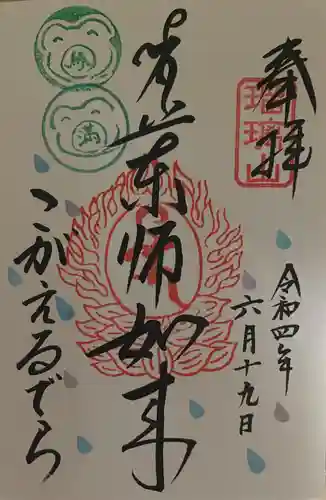 奉拝
瑠璃山
令和四年
六月十九日
薬師如来
つがえるでら
勝
満